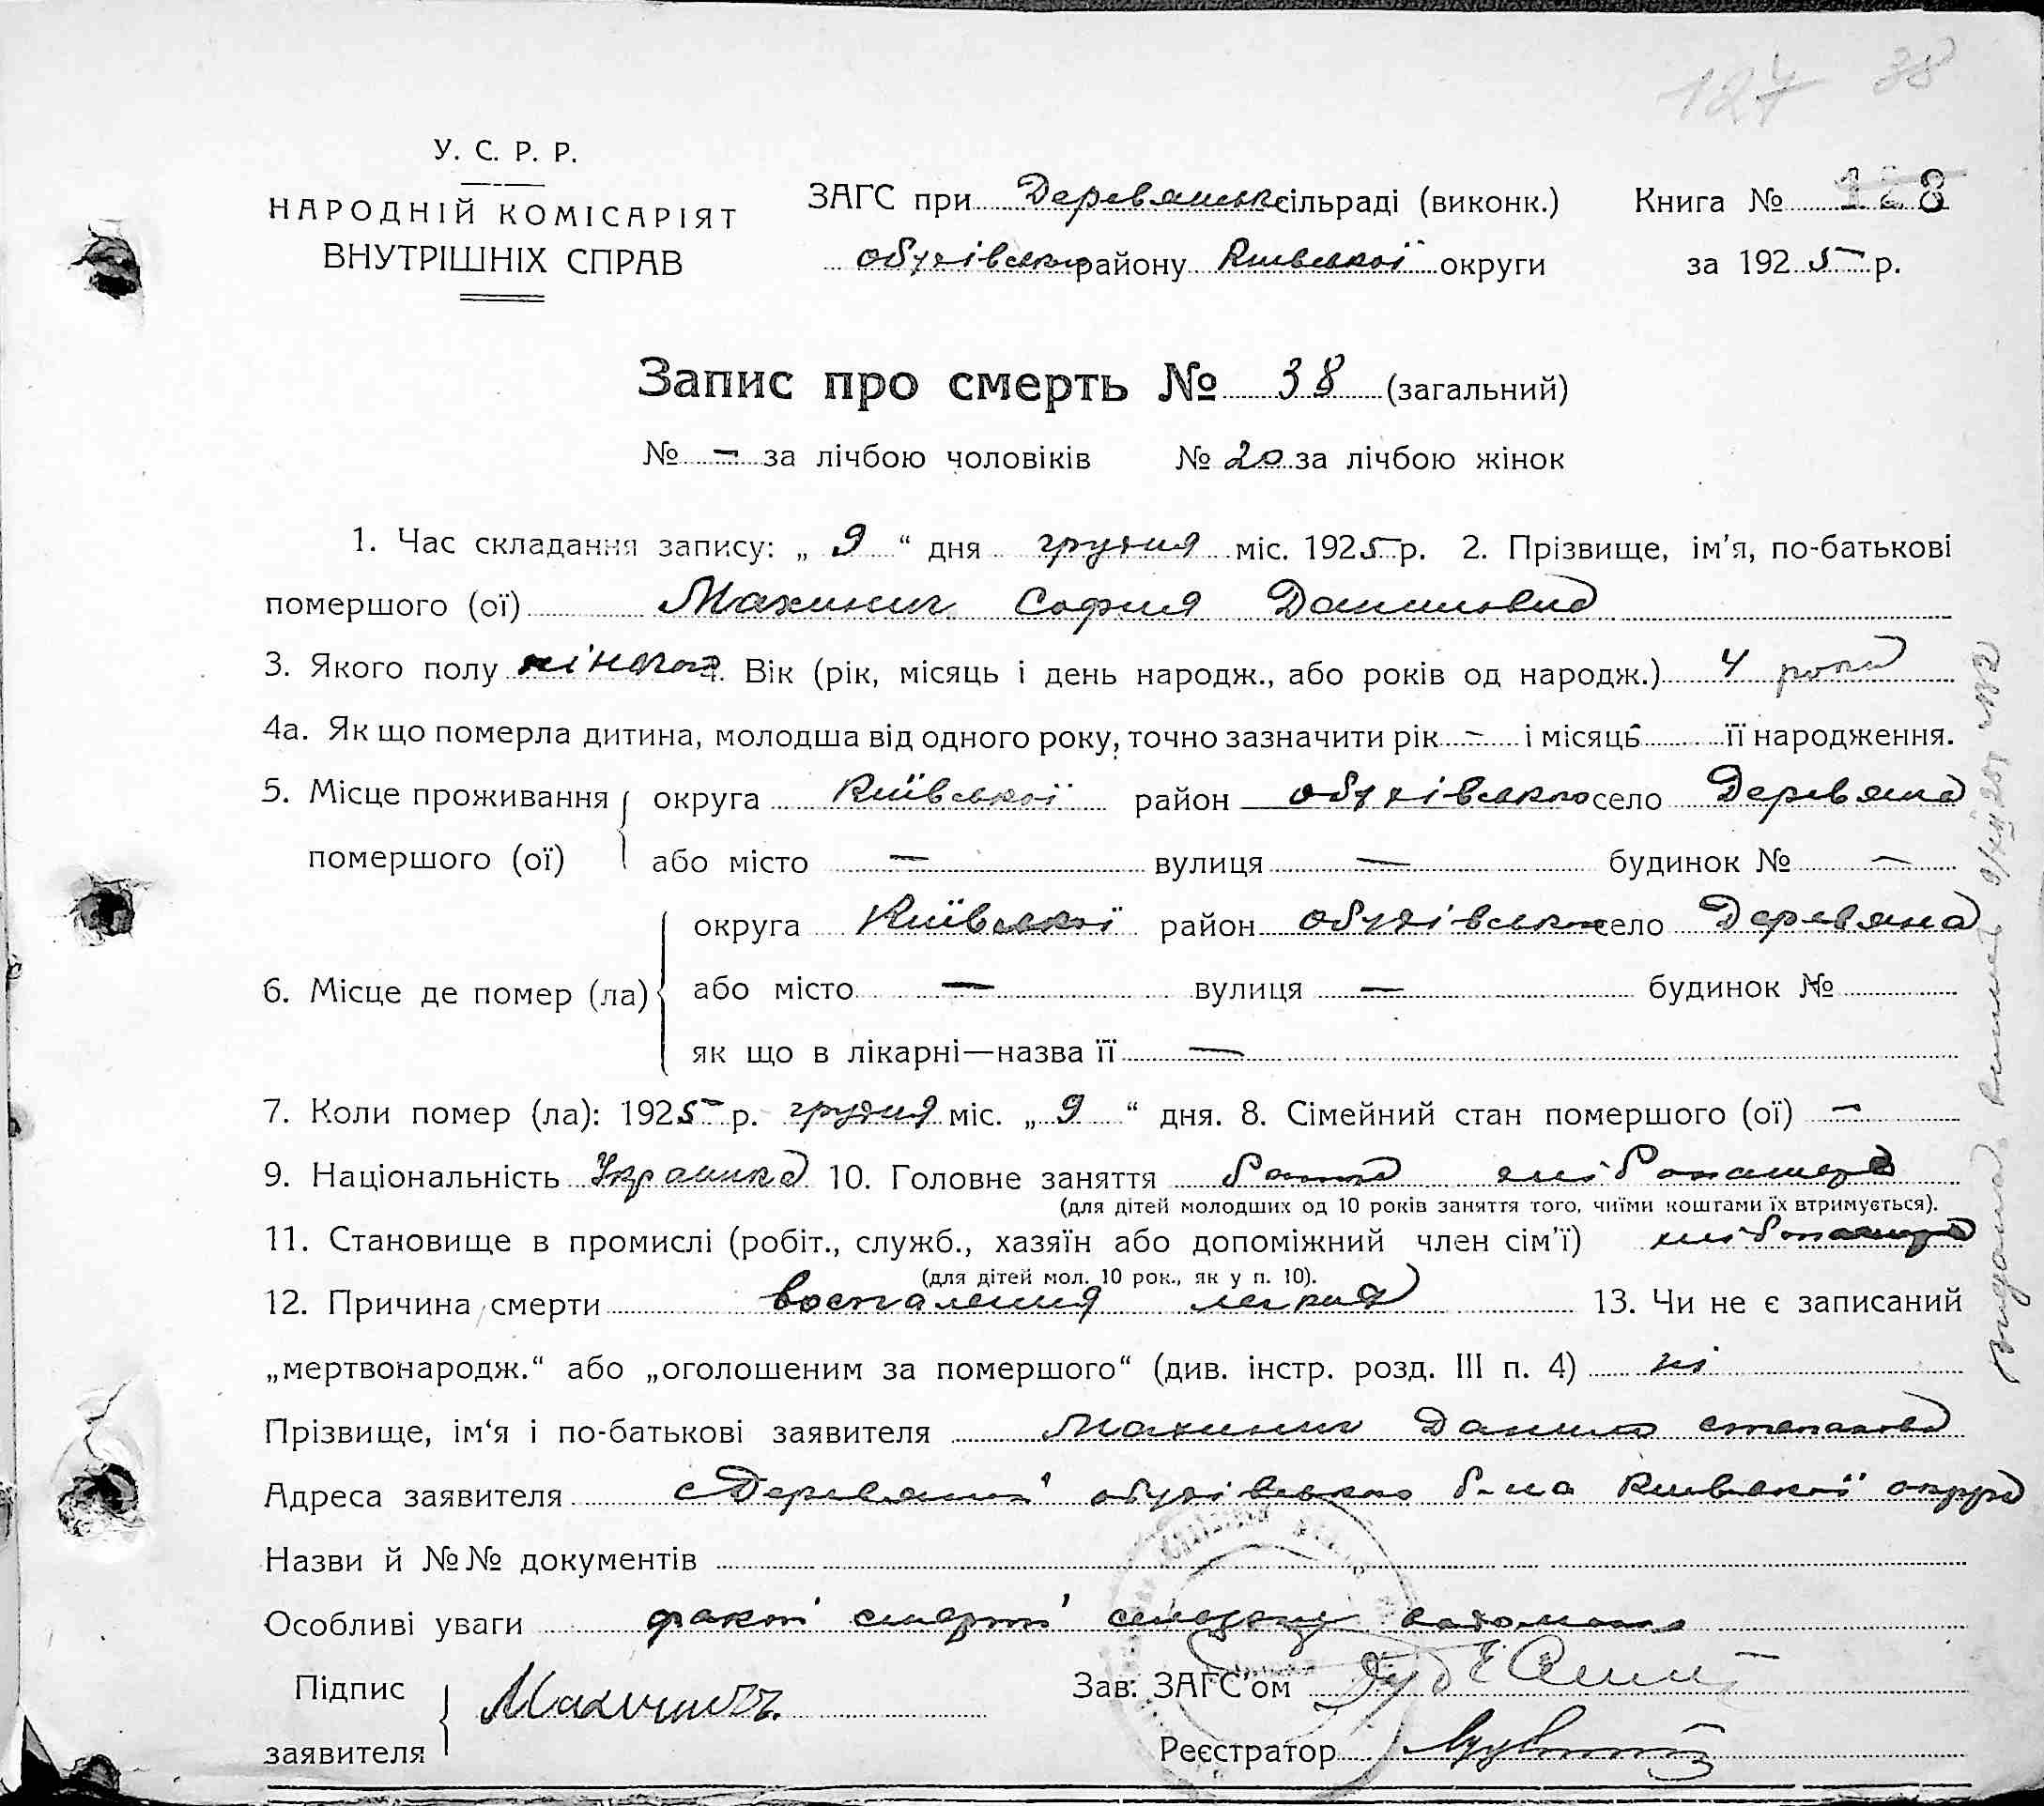 127 38
У. С. Р. Р.
НАРОДНІЙ КОМІСАРІЯТ
ВНУТРІШНІХ СПРАВ
ЗАГС при Деревянськ сільраді (виконк.)
Обухівського району Київської округи
Книга № 128
за 1925 р.
Запис про смерть № 38 (загальний)
№ — за лічбою чоловіків № 20 за лічбою жінок
1. Час складання запису: „ 9 “ дня грудня міс. 1925 р. 2. Прізвище, ім'я, по-батькові
помершого (ої) Махинич София Данилова
3. Якого полу жіноча 4. Вік (рік, місяць і день народж., або років од народж.) 4 роки
4а. Як що померла дитина, молодша від одного року, точно зазначити рік — і місяць її народження.
5. Місце проживання округа Київської район Обухівського село Деревяна
помершого (ої) або місто — вулиця — будинок № —
округа Київської район Обухівського село Деревяна
6. Місце де помер (ла) або місто — вулиця — будинок №
як що в лікарні—назва її —
7. Коли помер (ла): 1925 р. грудня міс. „ 9 “ дня. 8. Сімейний стан помершого (ої) —
9. Національність Украинка 10. Головне заняття
(для дітей молодших од 10 років заняття того, чиїми коштами їх втримується).
11. Становище в промислі (робіт., служб., хазяїн або допоміжний член сім'ї)
(для дітей мол. 10 рок., як у п. 10).
12. Причина смерти воспаления легких 13. Чи не є записаний
„мертвонародж.“ або „оголошеним за помершого“ (див. інстр. розд. III п. 4) ні
Прізвище, ім'я і по-батькові заявителя Махинич Данило Степанов
Адреса заявителя с Деревяній Обухівського р-на Київської округи
Назви й №№ документів
Особливі уваги факт смерті
Підпис
заявителя Махинич
Зав. ЗАГС'ом
Реєстратор